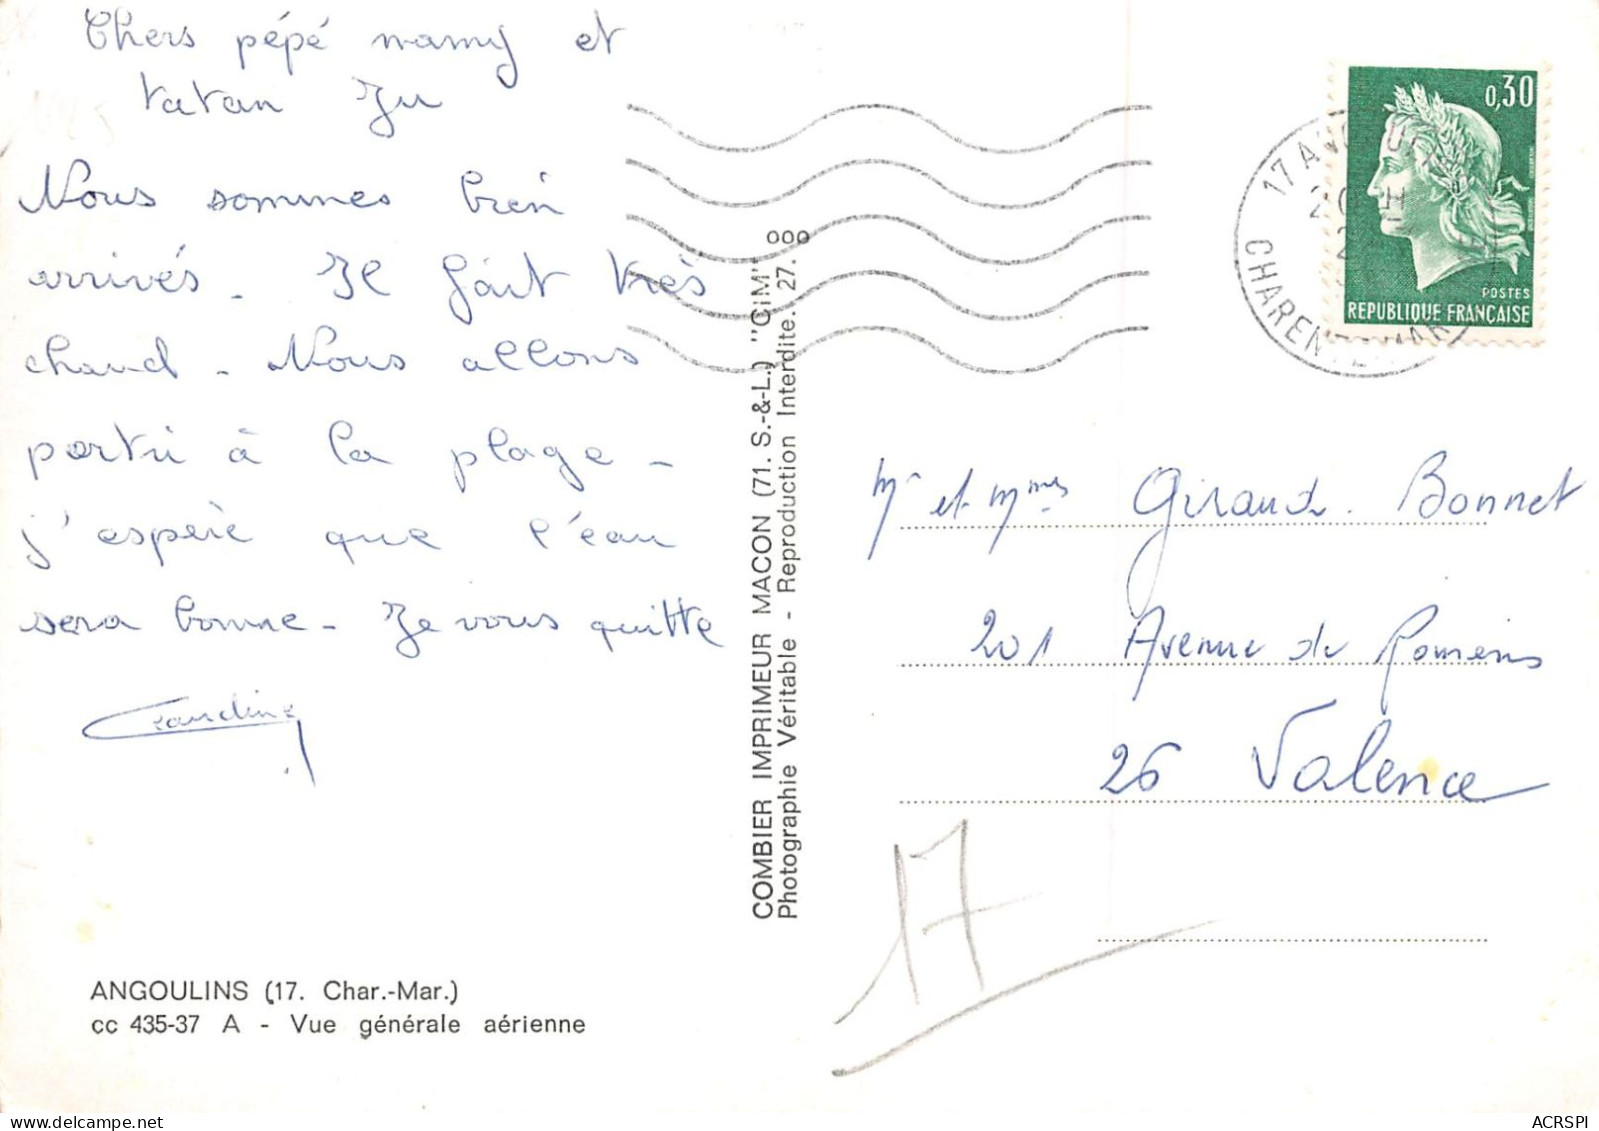 Chers pépé mamy et
tatan Ju
Nous sommes bien
arrivés - Il fait très
chaud - Nous allons
partir à la plage -
j'espère que l'eau
sera bonne - Je vous quitte
Claudine
ANGOULINS (17. Char.-Mar.)
cc 435-37 A - Vue générale aérienne
COMBIER IMPRIMEUR MACON (71. S.-&-L.) "CIM"
Photographie Véritable - Reproduction Interdite. 27. 000
0,30
POSTES
REPUBLIQUE FRANÇAISE
17 ANGOULINS
CHARENTE MAR
Mr et Mmes Giraud. Bonnet
201 Avenue de Romans
26 Valence
17
ACRSPI